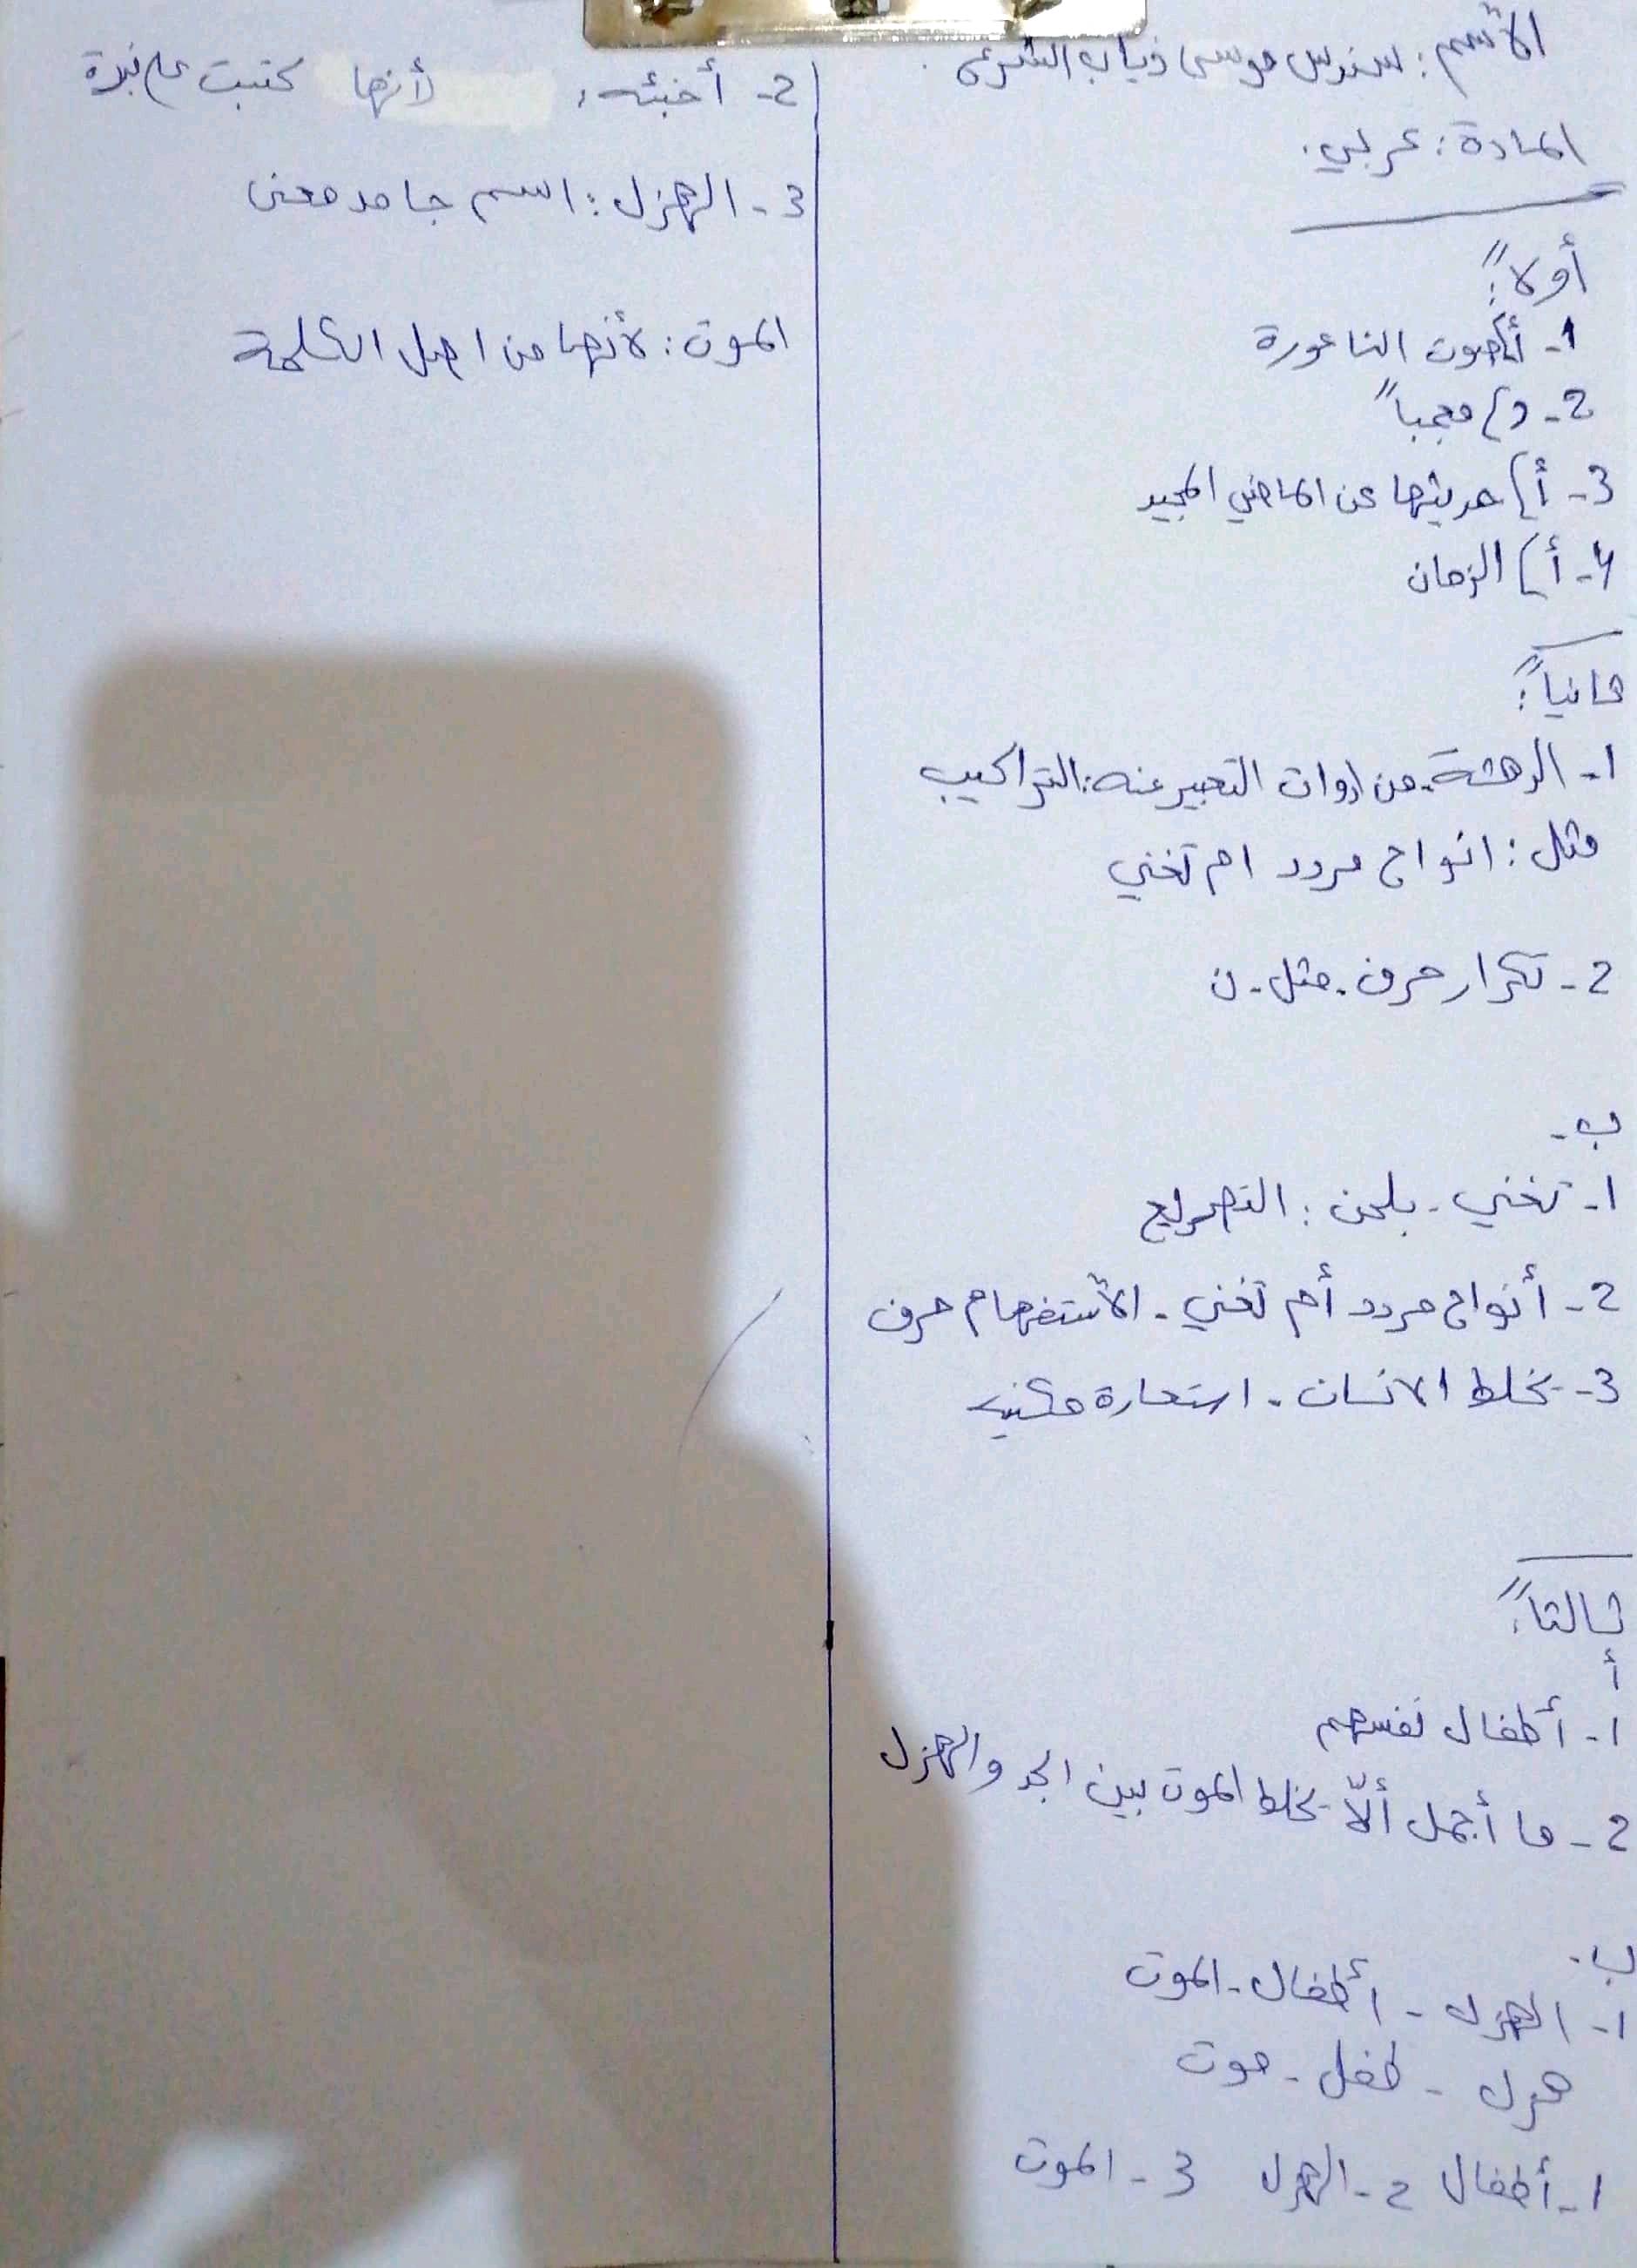 الأسم : سندس موسى ذياب الشرعي .
المادة : عربي .
أولاً :
1- أ) صوت الناعورة
2- د) معجباً
3- أ) حديثها عن الماضي المجيد
4- أ) الزمان
ثانياً :
1- الدهشة . من ادوات التعبير عنه : التراكيب
مثل : انواح مردد ام تغني
2- تكرار حرف . مثل - ن
ب -
1- تغني - بلحن : التصريع
2- أنواح مردد أم تغني - الأستفهام حرف
3- يخلط الانسان . استعارة مكنية
ثالثاً :
أ
1- أطفال نفسهم
2- ما أجمل ألّا يخلط الموت بين الجد والهزل
ب .
1- الهزل - أطفال - الموت
هزل - طفل - موت
1- أطفال 2- الهزل 3- الموت
2- أخبئه : لأنها كتبت على نبرة
3- الهزل : اسم جامد معنى
الموت : لأنها من اصل الكلمة